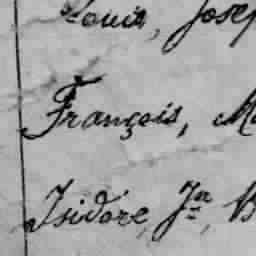 Louis, Josep
François, Ma
Isidore, Jr, B